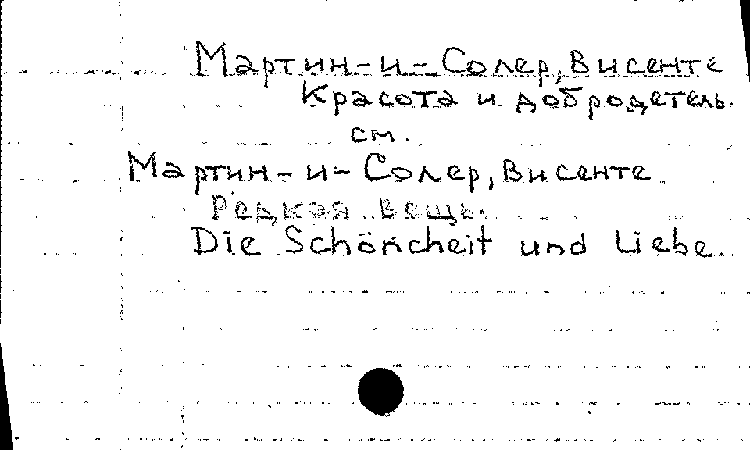 Мартин-и-Солер, Висенте
Красота и добродетель.
см.
Мартин-и-Солер, Висенте
Редкая вещь.
Die Schöncheit und Liebe.